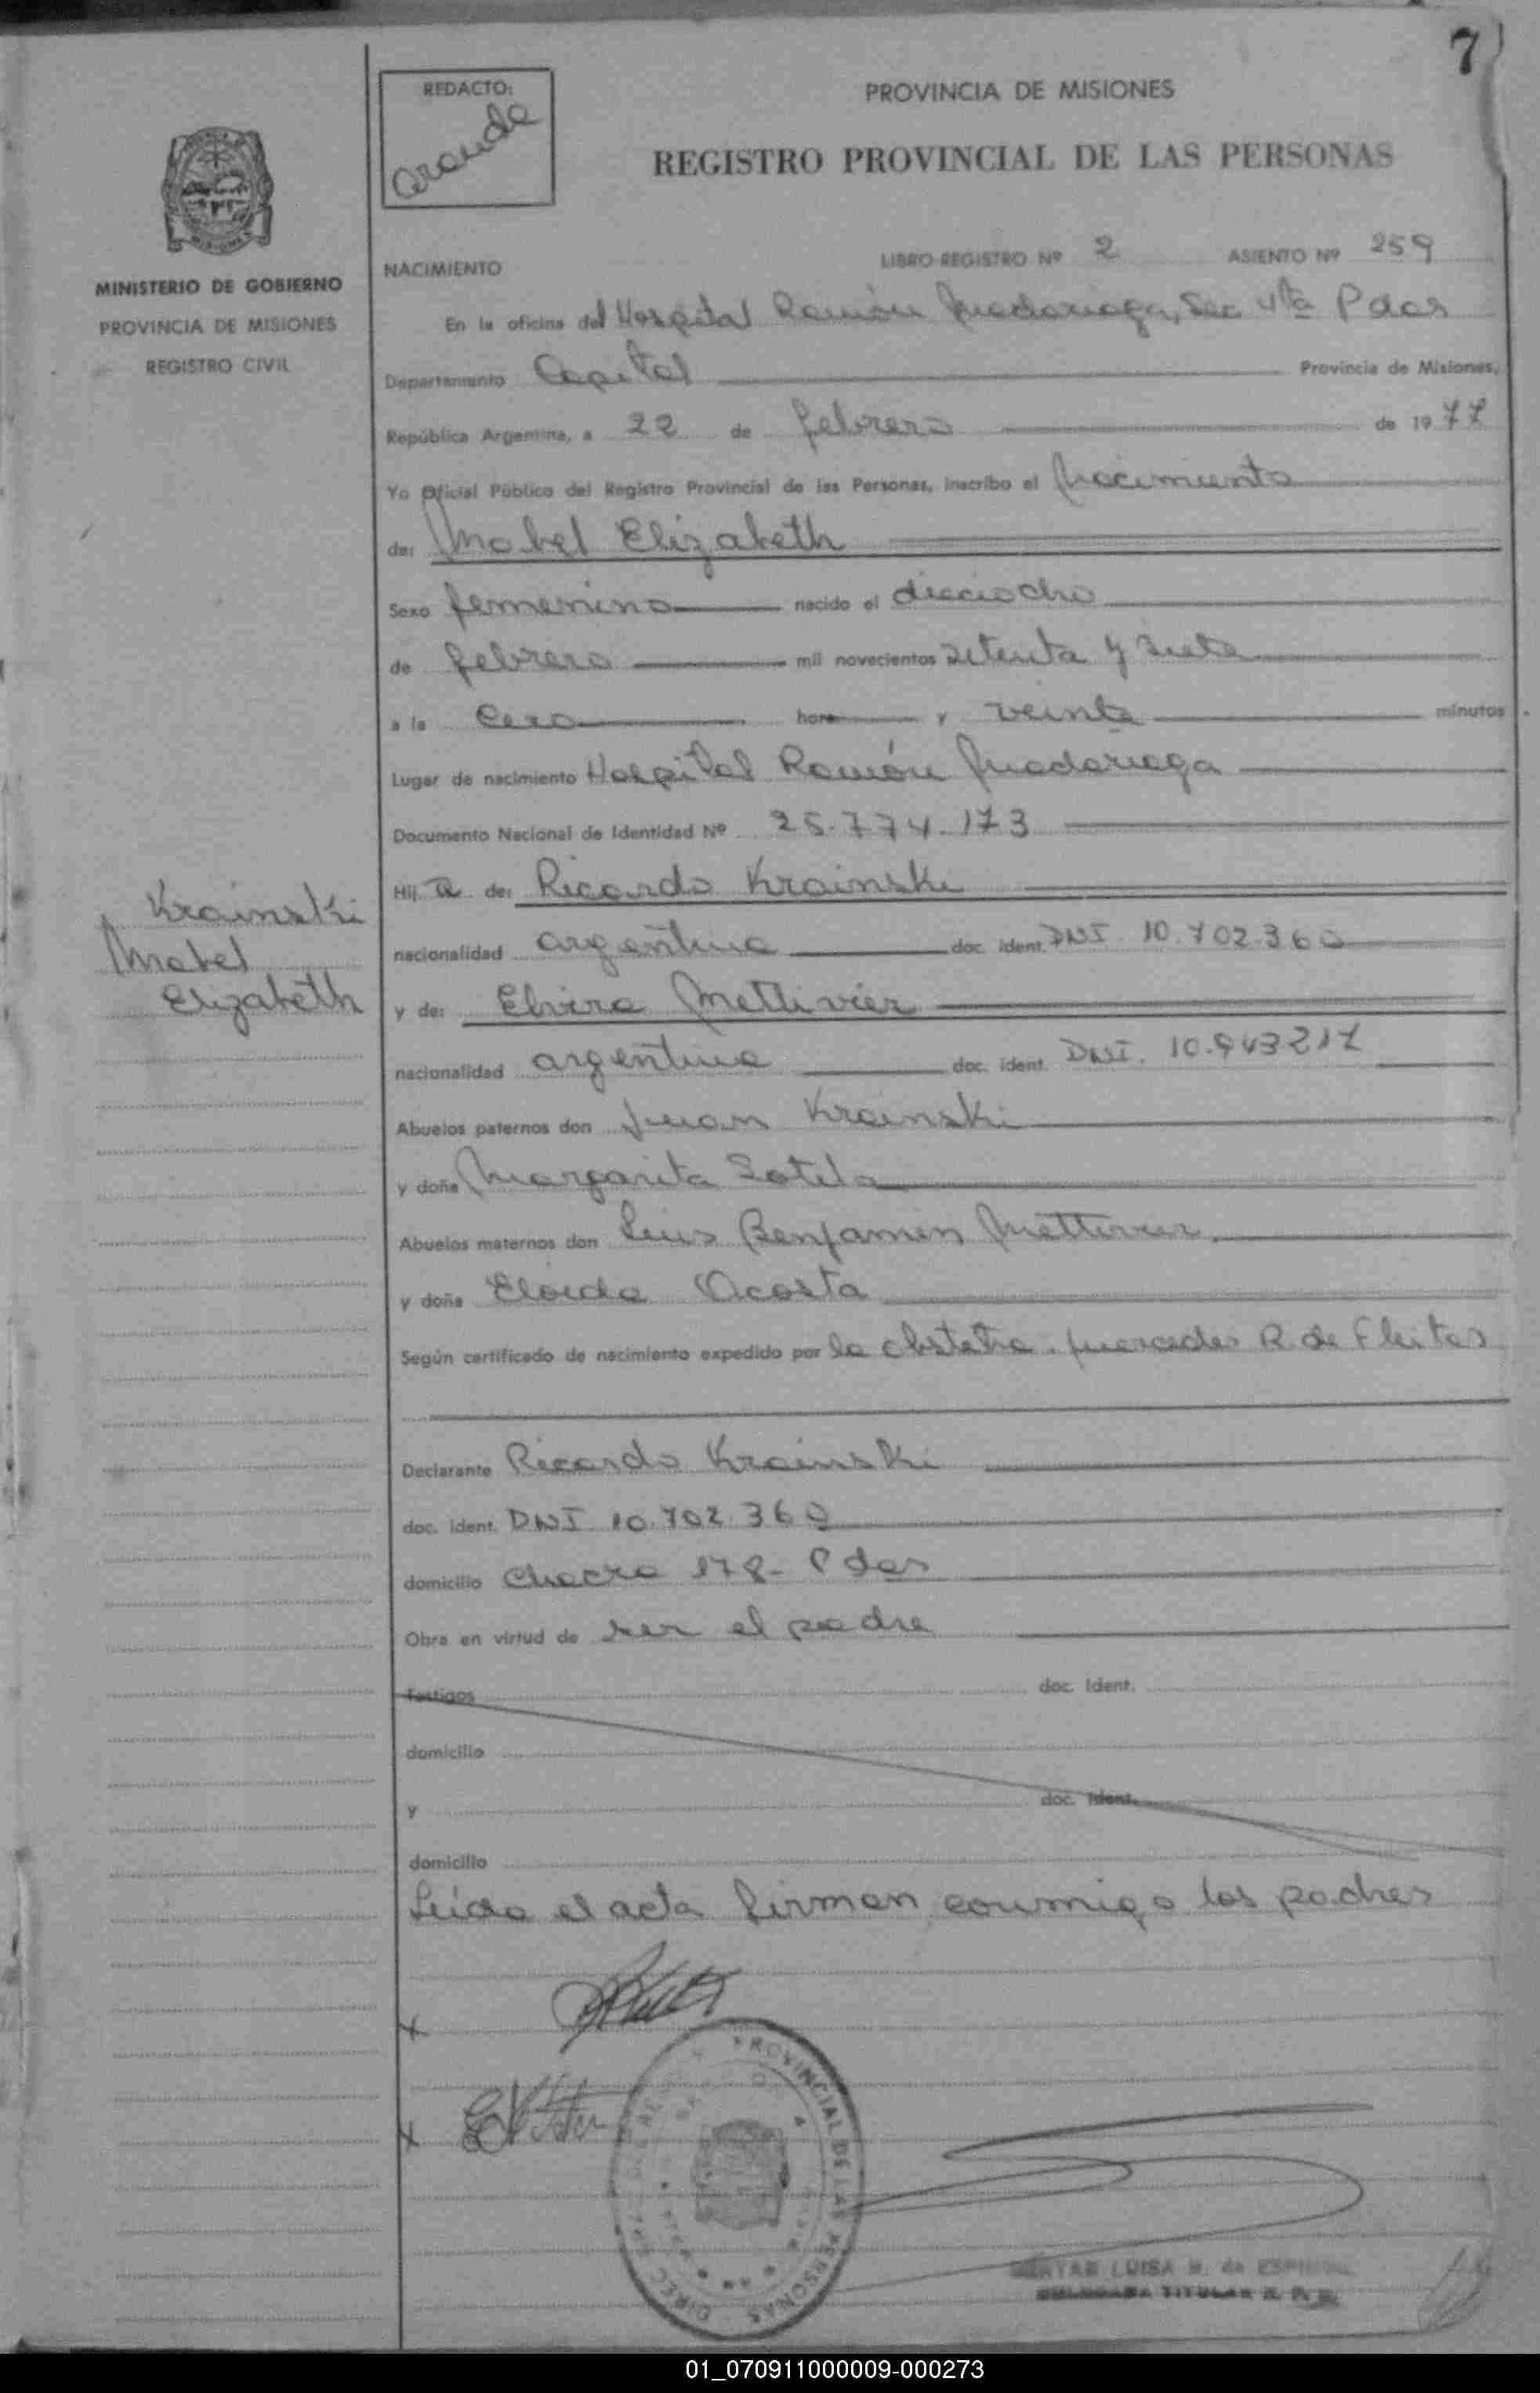 7
REDACTO:
Aranda
PROVINCIA DE MISIONES
REGISTRO PROVINCIAL DE LAS PERSONAS
MINISTERIO DE GOBIERNO
PROVINCIA DE MISIONES
REGISTRO CIVIL
NACIMIENTO LIBRO REGISTRO Nº 2 ASIENTO Nº 259
En la oficina del Hospital Ramón Madariaga, Sec 4ta Pdas
Departamento Capital Provincia de Misiones,
República Argentina, a 22 de febrero de 1977
Yo Oficial Público del Registro Provincial de las Personas, inscribo el Nacimiento
de: Mabel Elizabeth
Sexo femenino nacido el dieciocho
de febrero mil novecientos setenta y siete
a la cero hora y veinte minutos
Lugar de nacimiento Hospital Ramón Madariaga
Documento Nacional de Identidad Nº 25.774.173
Hij a de: Ricardo Krainski
Krainski
Mabel
Elizabeth
nacionalidad argentina doc. ident. DNI. 10.702.360
y de: Elvira Mettivier
nacionalidad argentina doc. ident. DNI. 10.943217
Abuelos paternos don Juan Krainski
y doña Margarita Sotelo
Abuelos maternos don Luis Benjamin Mettivier
y doña Eloida Acosta
Según certificado de nacimiento expedido por la obstetra. Mercedes R de Fleitas
Declarante Ricardo Krainski
doc. ident. DNI 10.702.360
domicilio Chacra 178- Pdas
Obra en virtud de ser el padre
Testigos doc. Ident.
domicilio
y doc. Ident.
domicilio
Leída el acta firman conmigo los padres
x
x
PROVINCIAL DE LAS PERSONAS
LUISA
TITULAR
01_070911000009-000273